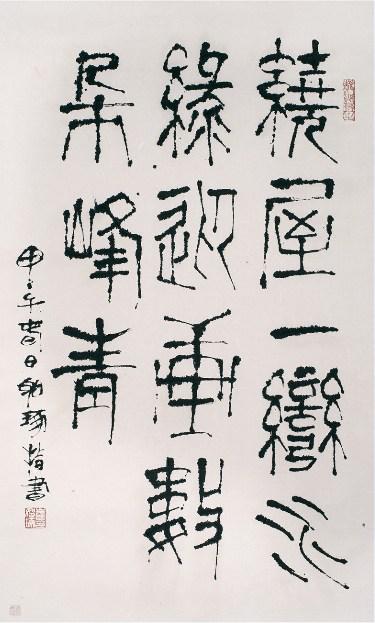 繞屋一彎水
綠迎數
朵峰青
甲午春日書